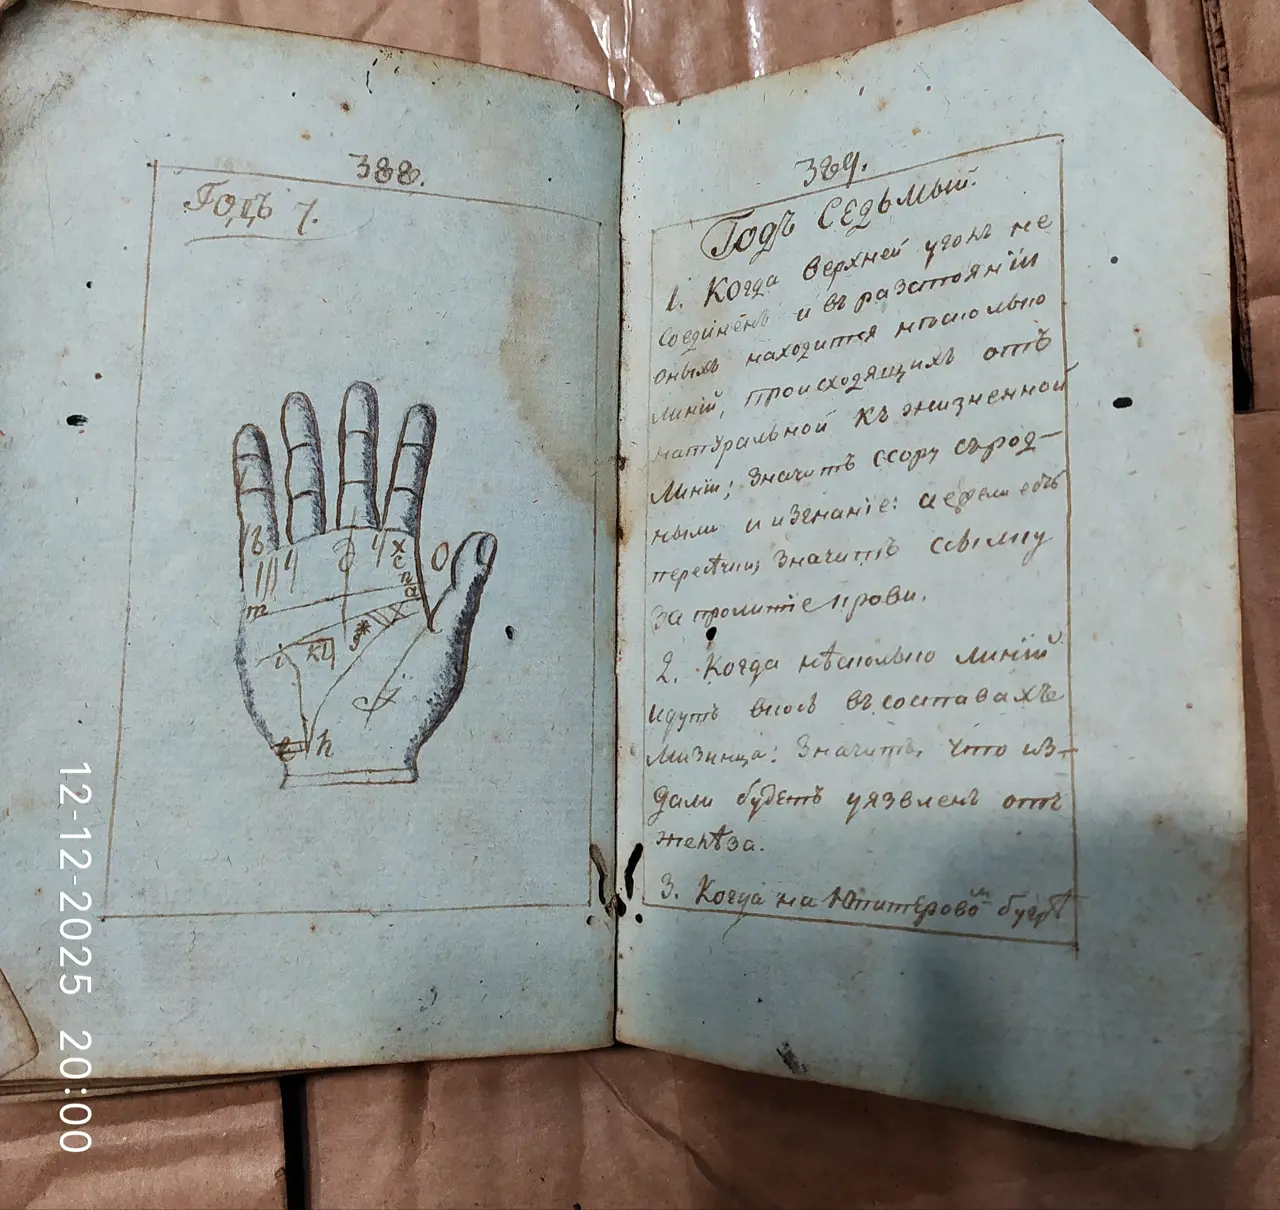 388.
Годъ 7.
ъ
m
x
c
n
a
i
kl
g
*
e h
389.
Годъ Седьмый.
1. Когда верхней уголъ не
соединенъ и въ разстоянiи
оныхъ находится нѣсколько
линiй, происходящихъ отъ
натуральной къ жизненной
линiи; значитъ ссору съ род-
ными и изгнанiе: а ежели обѣ
значитъ ссылку
за пролитiе крови.
2. Когда нѣсколько линiй
идутъ вкось въ составахъ
мизинца: значитъ, что из-
дали будетъ уязвленъ отъ
желѣза.
3. Когда на Юпитеровомъ бугрѣ
12-12-2025 20:00